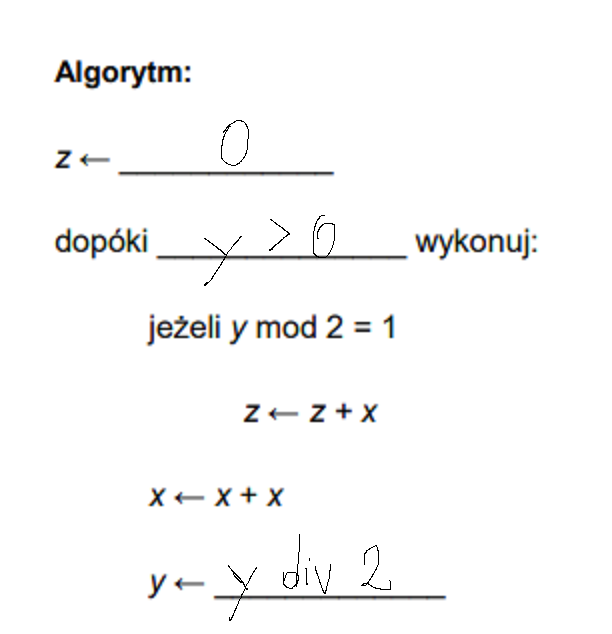 Algorytm:
z ← 0
dopóki y > 0 wykonuj:
jeżeli y mod 2 = 1
z ← z + x
x ← x + x
y ← y div 2